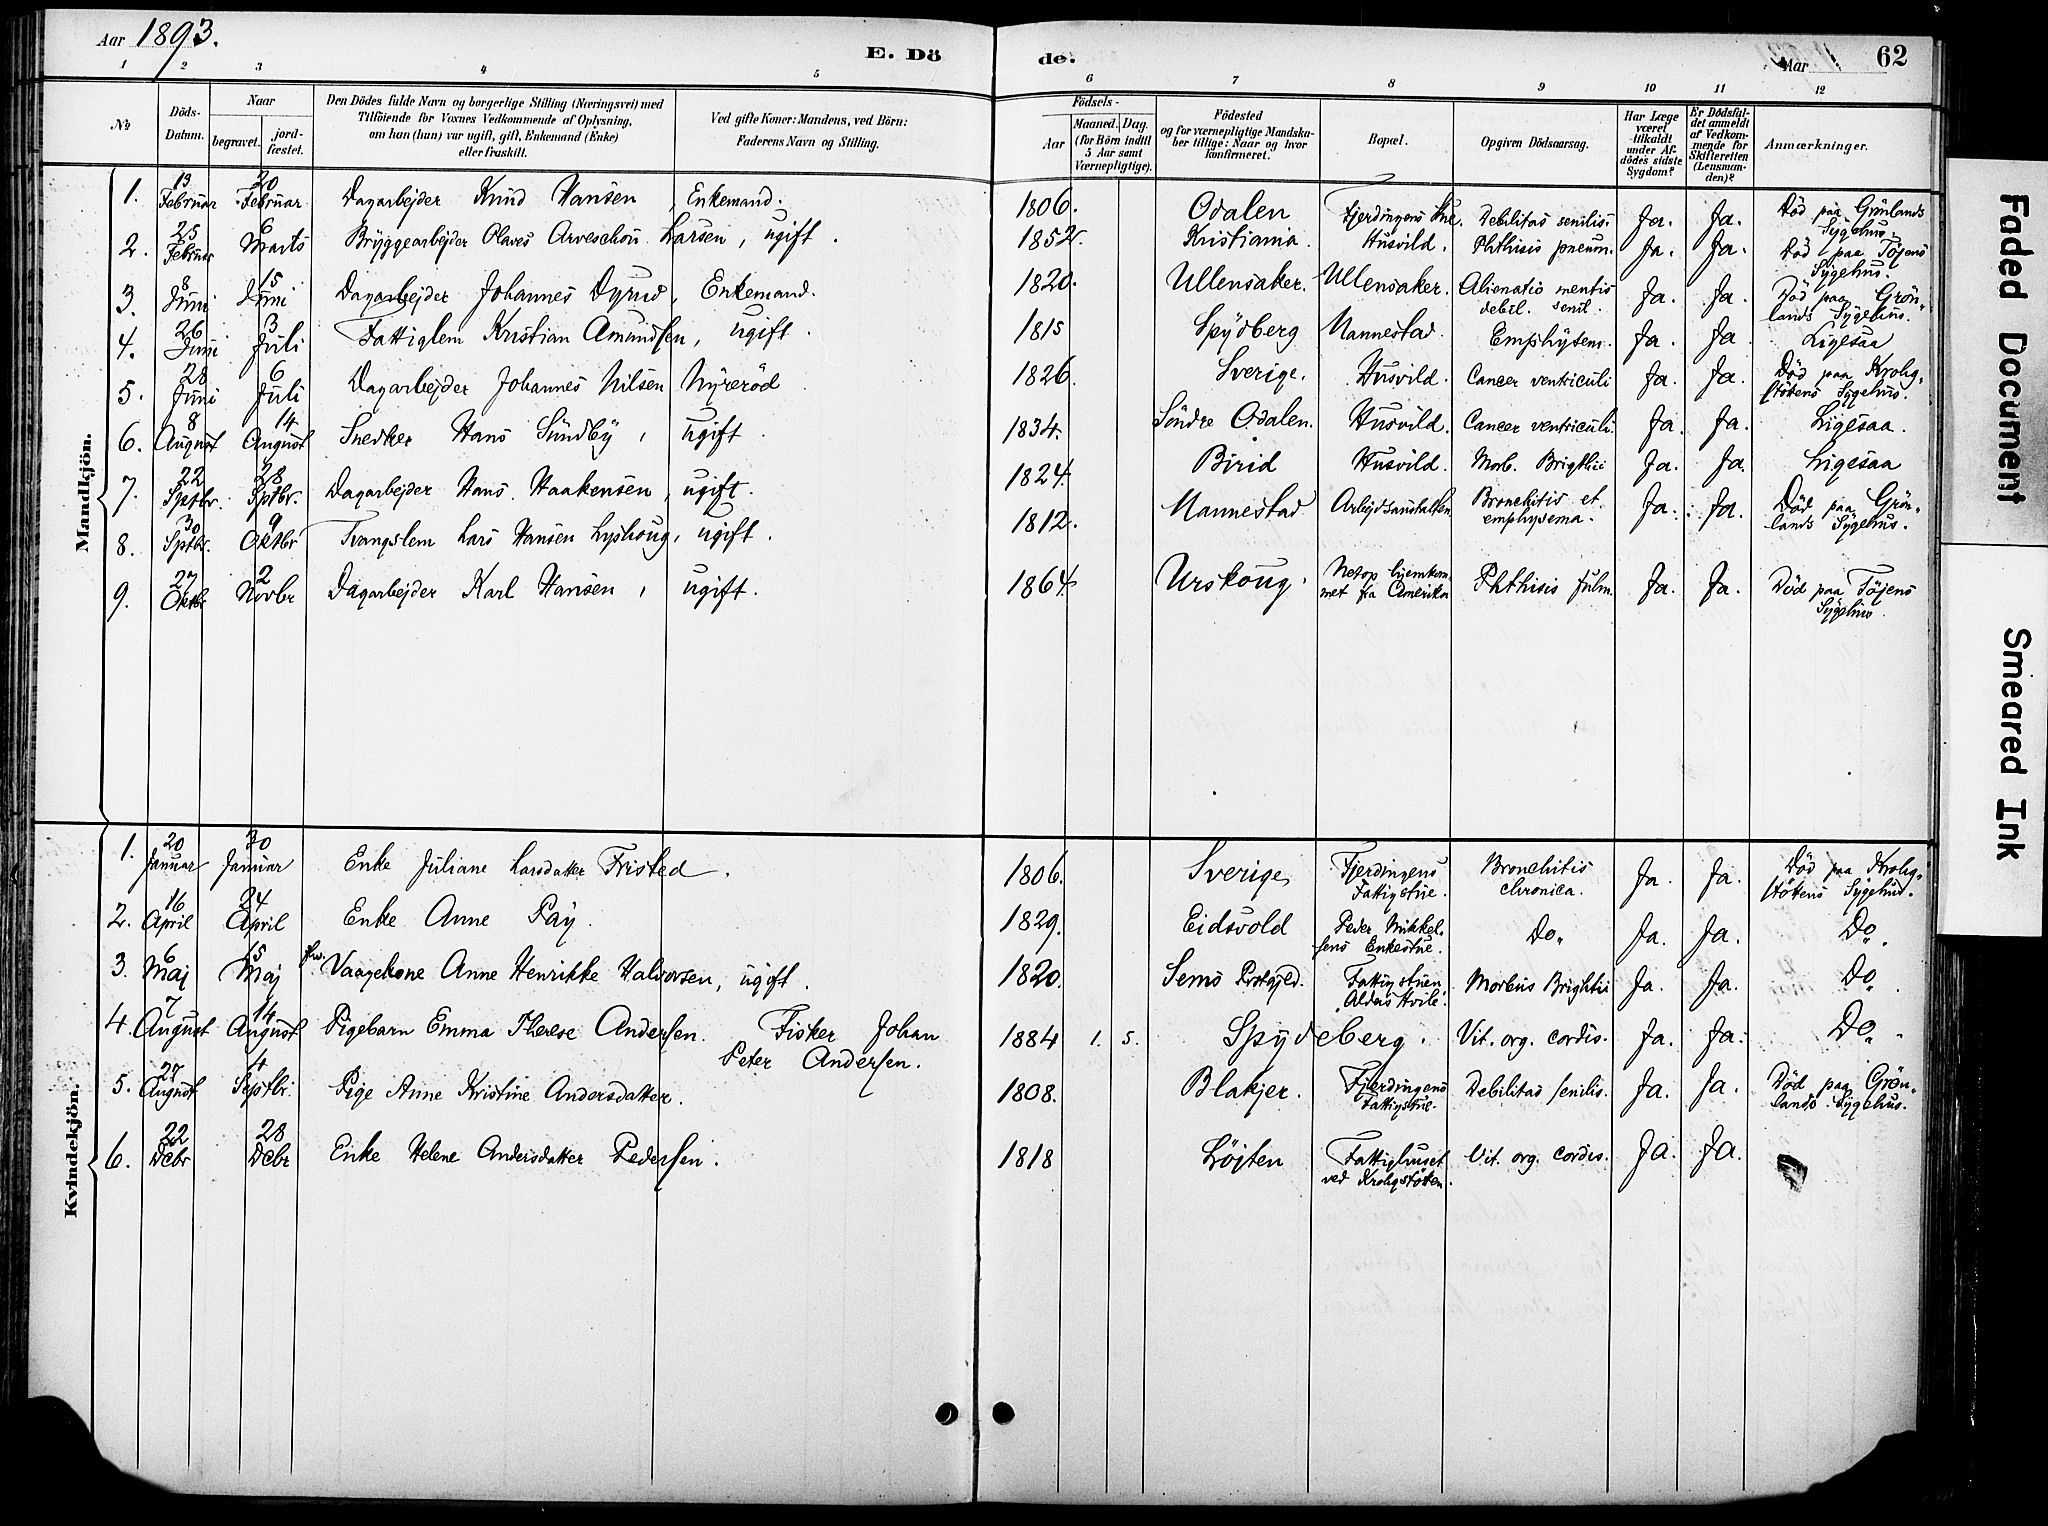 Aar 1893.
E. Dö
de.
Aar
62
1 2 3 4 5 6 7 8 9 10 11 12
No
Döds-Datum.
Naar
begravet.
jord-fæstet.
Den Dödes fulde Navn og borgerlige Stilling (Næringsvei) med
Tilföiende for Voxnes Vedkommende af Oplysning,
om han (hun) var ugift, gift, Enkemand (Enke)
eller fraskilt.
Ved gifte Koner: Mandens, ved Börn:
Faderens Navn og Stilling.
Födsels-
Aar
Maaned. Dag.
(for Börn indtil
5 Aar samt
Værnepligtige).
Födested
og for værnepligtige Mandska-
ber tillige: Naar og hvor
konfirmeret.
Bopæl.
Opgiven Dödsaarsag.
Har Læge
været
tilkaldt
under Af-
dödes sidste
Sygdom?
Er Dödsfal-
det anmeldt
af Vedkom-
mende for
Skifteretten
(Lensman-
den)?
Anmærkninger.
Mandkjön.
1. 13 Februar 20 Februar Dagarbejder Knud Hansen, Enkemand. 1806. Odalen Fjerdingens Stue. Debilitas senilis. Ja. Ja. Död paa Grönlands Sygehus.
2. 25 Februar 6 Marts Bryggearbejder Olaves Arveschou Larsen, ugift. 1852. Kristiania. Husvild. Phthisis pneum. Ja. Ja. Död paa Töjens Sygehus.
3. 8 Juni 15 Juni Dagarbejder Johannes Dyrud, Enkemand. 1820. Ullensaker. Ullensaker. Alienatio mentis debil. senil. Ja. Ja. Död paa Grön-lands Sygehus.
4. 26 Juni 3 Juli Fattiglem Kristian Amundsen, ugift. 1815 Spydberg Mannestad. Emphysem. Ja. Ja. Ligesaa
5. 28 Juni 6 Juli Dagarbejder Johannes Nilsen Nyreröd. 1826. Sverige. Husvild. Cancer ventriculi Ja. Ja. Död paa Krohg-stötens Sygehus.
6. 8 August 14 August Snedker Hans Sundby, ugift. 1834. Söndre Odalen. Husvild. Cancer ventriculi. Ja. Ja. Ligesaa.
7. 22 Sptbr. 28 Sptbr. Dagarbejder Hans Haakensen, ugift. 1824 Birid Husvild. Morb. Brigthii Ja. Ja. Ligesaa
8. 30 Sptbr. 9 Oktbr Tvangslem Lars Hansen Lyshoug, ugift. 1812. Mannestad Arbejdsanstalten. Bronchitis et emphysema. Ja. Ja. Död paa Grön-lands Sygehus.
9. 27 Oktbr 2 Novbr Dagarbejder Karl Hansen, ugift. 1864 Urskoug. Netop hjemkom-met fra Amerika Phthisis fulm. Ja. Ja. Död paa Töjens Sygehus.
Kvindekjön.
1. 20 Januar 30 Januar Enke Juliane Larsdatter Fristed. 1806. Sverige Fjerdingens Fattigstue. Bronchitis chronica. Ja. Ja. Död paa Krohg-stötens Sygehus.
2. 16 April 24 April Enke Anne Pay. 1829. Eidsvold Peder Mikkel-sens Enkestue. Do. Ja. Ja. Do.
3. 6 Maj 15 Maj Vaagekone Anne Henrikke Halvorsen, ugift. 1820. Sems Prstgjeld. Fattigstuen, Alders Hvile. Morbus Brightii Ja. Ja. Do.
4. 7 August 14 August Pigebarn Emma Therese Andersen. Fisker Johan Peter Andersen. 1884 1. 5. Spydeberg. Vit. org. cordis. Ja. Ja. Do.
5. 27 August 4 Septbr. Pige Anne Kristine Andersdatter. 1808. Blakjer. Fjerdingens Fattigstue. Debilitas senilis. Ja. Ja. Död paa Grön-lands Sygehus.
6. 22 Dcbr 28 Dcbr Enke Helene Andersdatter Pedersen. 1818 Löjten Fattighuset ved Krohgstötten. Vit. org. cordis. Ja. Ja.
Faded Document
Smeared Ink